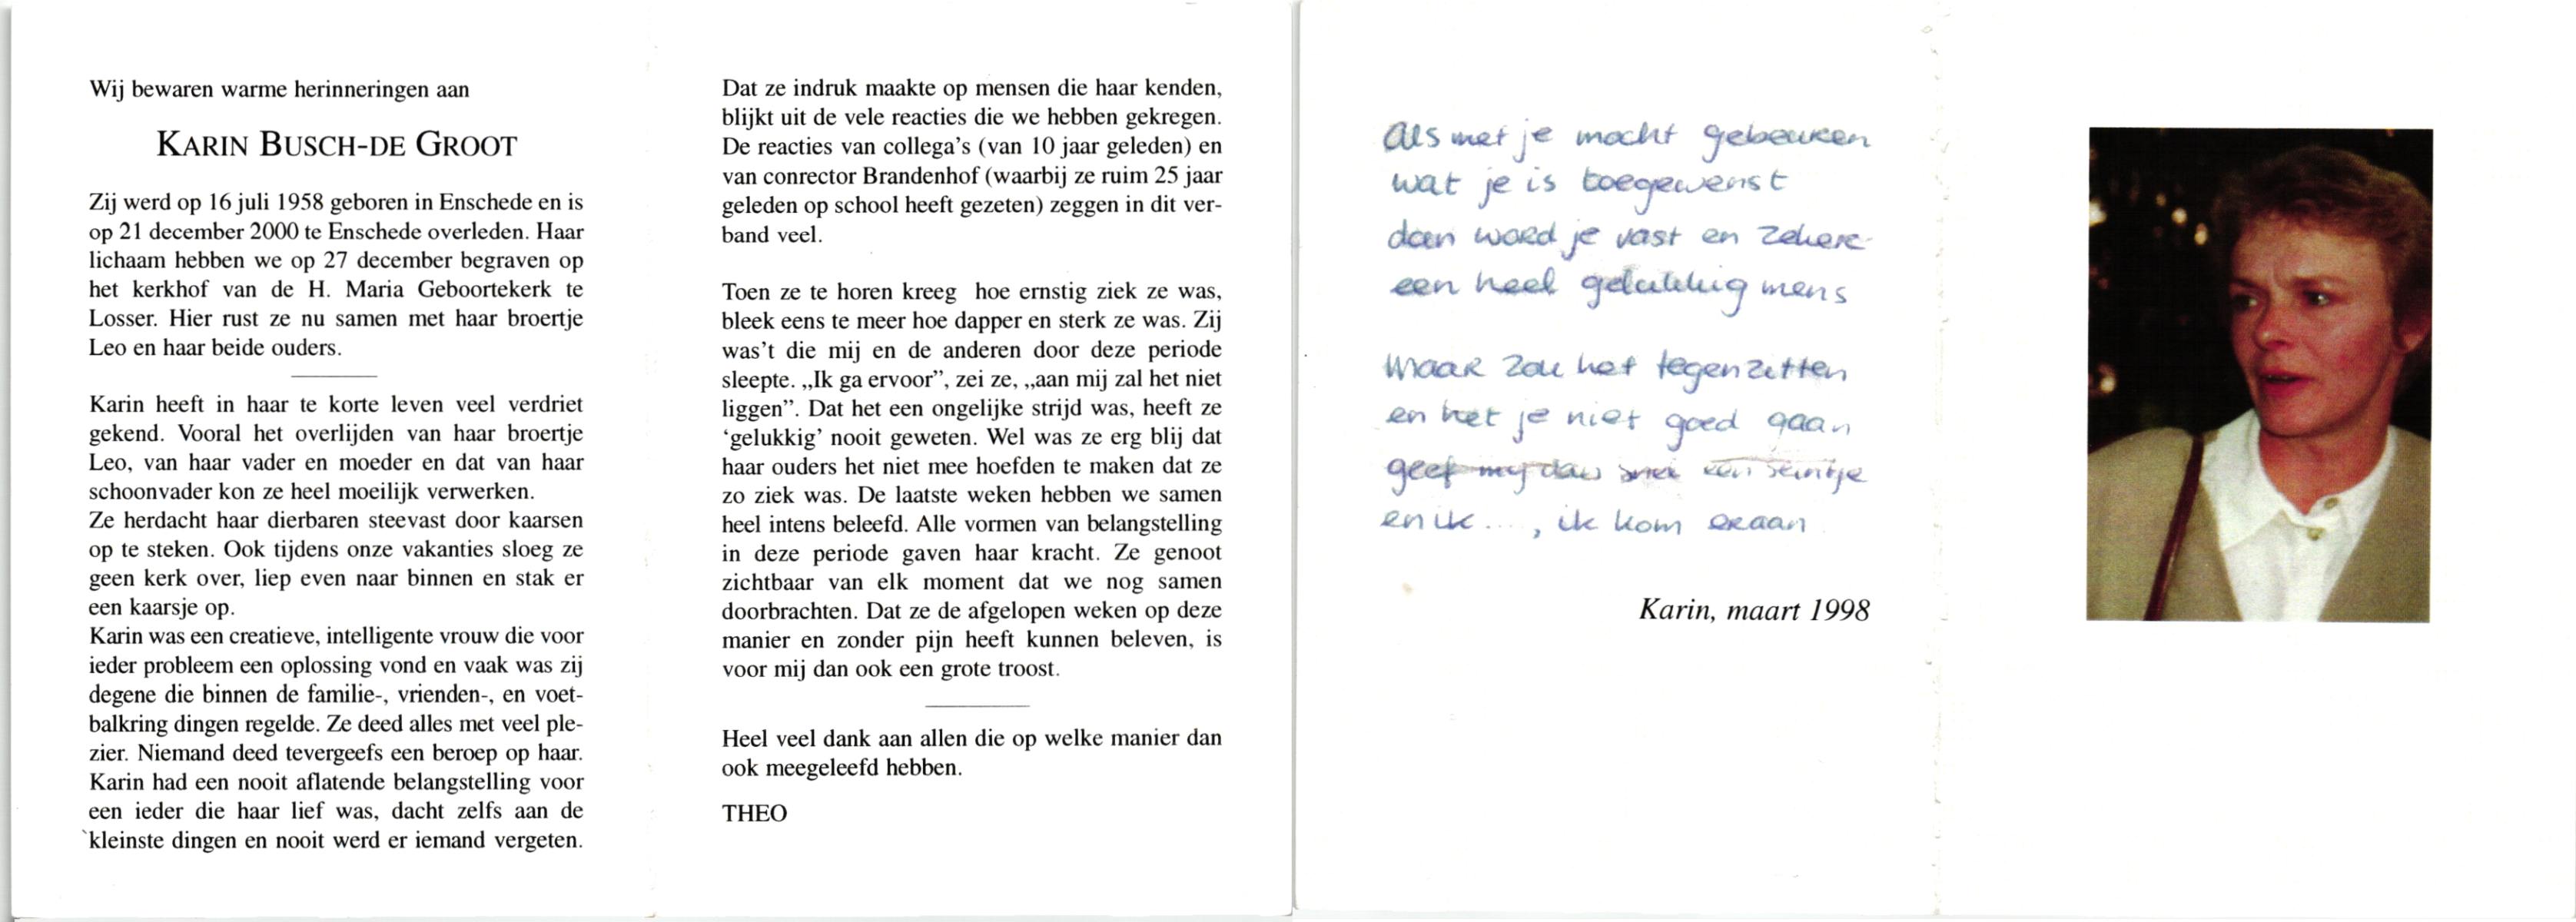 Wij bewaren warme herinneringen aan
KARIN BUSCH-DE GROOT
Zij werd op 16 juli 1958 geboren in Enschede en is
op 21 december 2000 te Enschede overleden. Haar
lichaam hebben we op 27 december begraven op
het kerkhof van de H. Maria Geboortekerk te
Losser. Hier rust ze nu samen met haar broertje
Leo en haar beide ouders.
Karin heeft in haar te korte leven veel verdriet
gekend. Vooral het overlijden van haar broertje
Leo, van haar vader en moeder en dat van haar
schoonvader kon ze heel moeilijk verwerken.
Ze herdacht haar dierbaren steevast door kaarsen
op te steken. Ook tijdens onze vakanties sloeg ze
geen kerk over, liep even naar binnen en stak er
een kaarsje op.
Karin was een creatieve, intelligente vrouw die voor
ieder probleem een oplossing vond en vaak was zij
degene die binnen de familie-, vrienden-, en voet-
balkring dingen regelde. Ze deed alles met veel ple-
zier. Niemand deed tevergeefs een beroep op haar.
Karin had een nooit aflatende belangstelling voor
een ieder die haar lief was, dacht zelfs aan de
kleinste dingen en nooit werd er iemand vergeten.
Dat ze indruk maakte op mensen die haar kenden,
blijkt uit de vele reacties die we hebben gekregen.
De reacties van collega's (van 10 jaar geleden) en
van conrector Brandenhof (waarbij ze ruim 25 jaar
geleden op school heeft gezeten) zeggen in dit ver-
band veel.
Toen ze te horen kreeg hoe ernstig ziek ze was,
bleek eens te meer hoe dapper en sterk ze was. Zij
was't die mij en de anderen door deze periode
sleepte. „Ik ga ervoor”, zei ze, „aan mij zal het niet
liggen”. Dat het een ongelijke strijd was, heeft ze
‘gelukkig’ nooit geweten. Wel was ze erg blij dat
haar ouders het niet mee hoefden te maken dat ze
zo ziek was. De laatste weken hebben we samen
heel intens beleefd. Alle vormen van belangstelling
in deze periode gaven haar kracht. Ze genoot
zichtbaar van elk moment dat we nog samen
doorbrachten. Dat ze de afgelopen weken op deze
manier en zonder pijn heeft kunnen beleven, is
voor mij dan ook een grote troost.
Heel veel dank aan allen die op welke manier dan
ook meegeleefd hebben.
THEO
Als met je mocht gebeuren
wat je is toegewenst
dan word je vast en zeker
een heel gelukkig mens
Maar zou het tegenzitten
en het je niet goed gaan
geef mij dan snel een seintje
en ik..., ik kom eraan
Karin, maart 1998